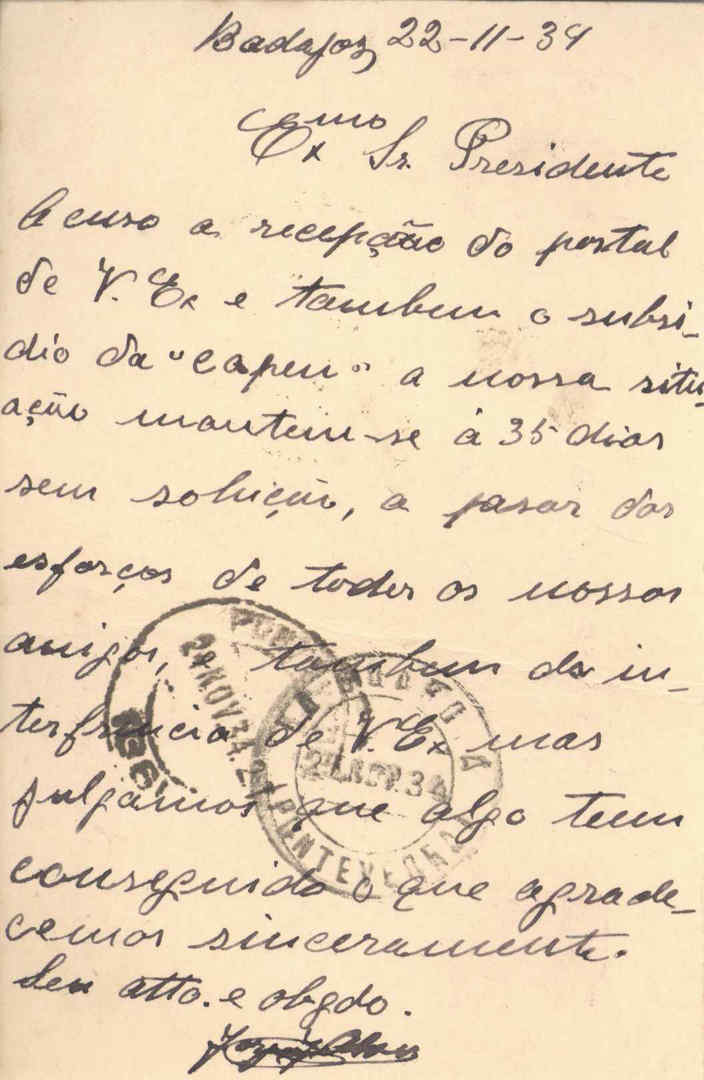 Badajoz, 22-11-34
Excemo Sr. Presidente
Acuso a recepção do postal
de V. Ex e tambem o subsi-
dio da "Capen" a nossa situ-
ação mantem-se á 35 dias
sem solução, a pasar dos
esforços de todos os nossos
amigos, e tambem da in-
terfrencia de V. Ex mas
julgamos que algo tem
conseguido o que agrade-
cemos sinceramente.
Seu atto. e obgdo.
24 NOV 34
PONTEVEDRA